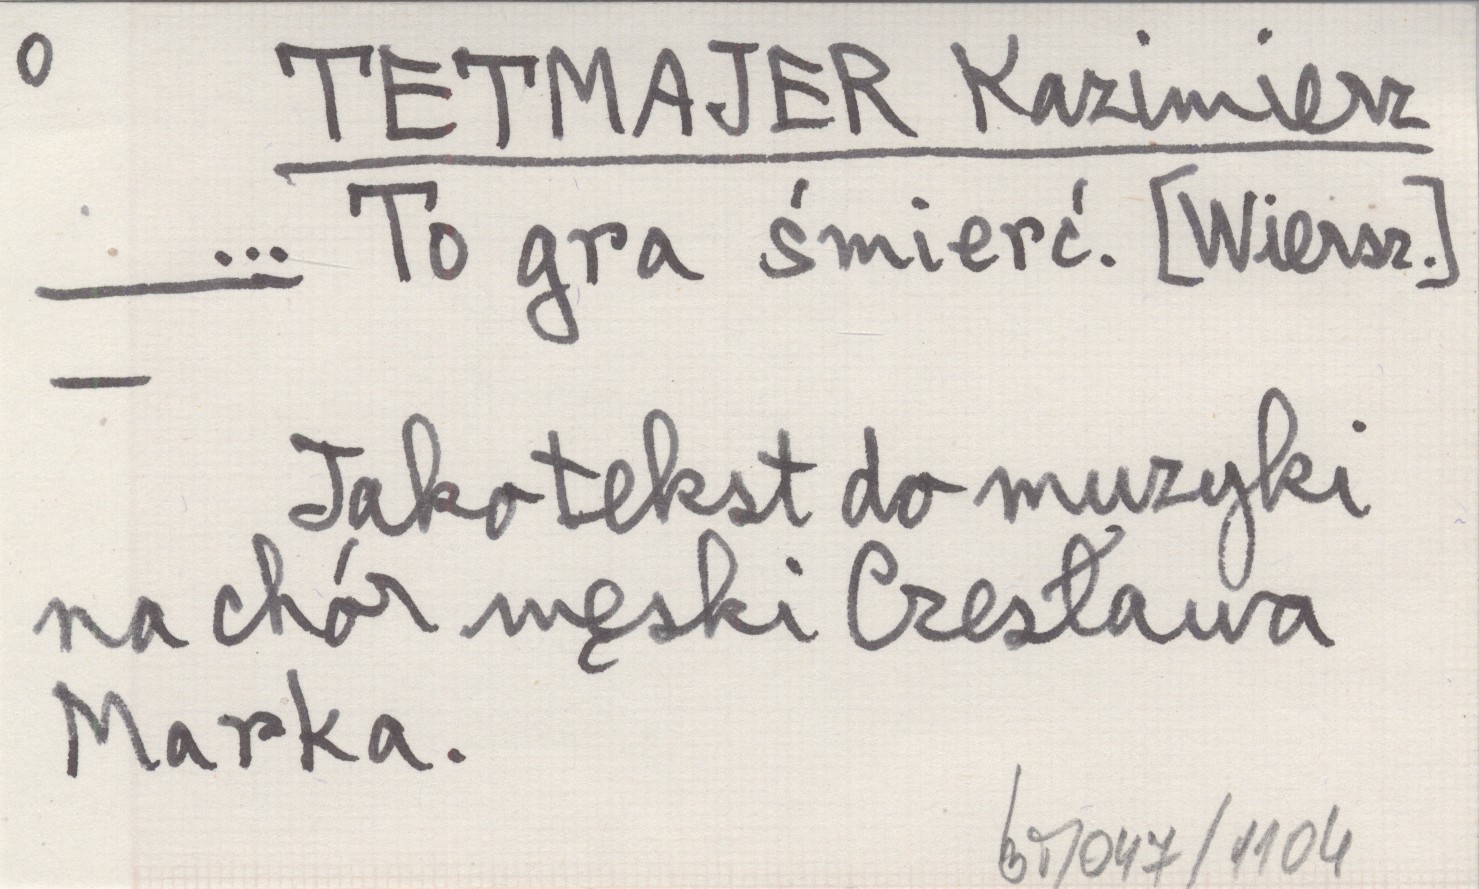 0
TETMAJER Kazimierz
... To gra śmierć. [Wiersz.]
—
Jako tekst do muzyki
na chór męski Czesława
Marka.
/047/1104